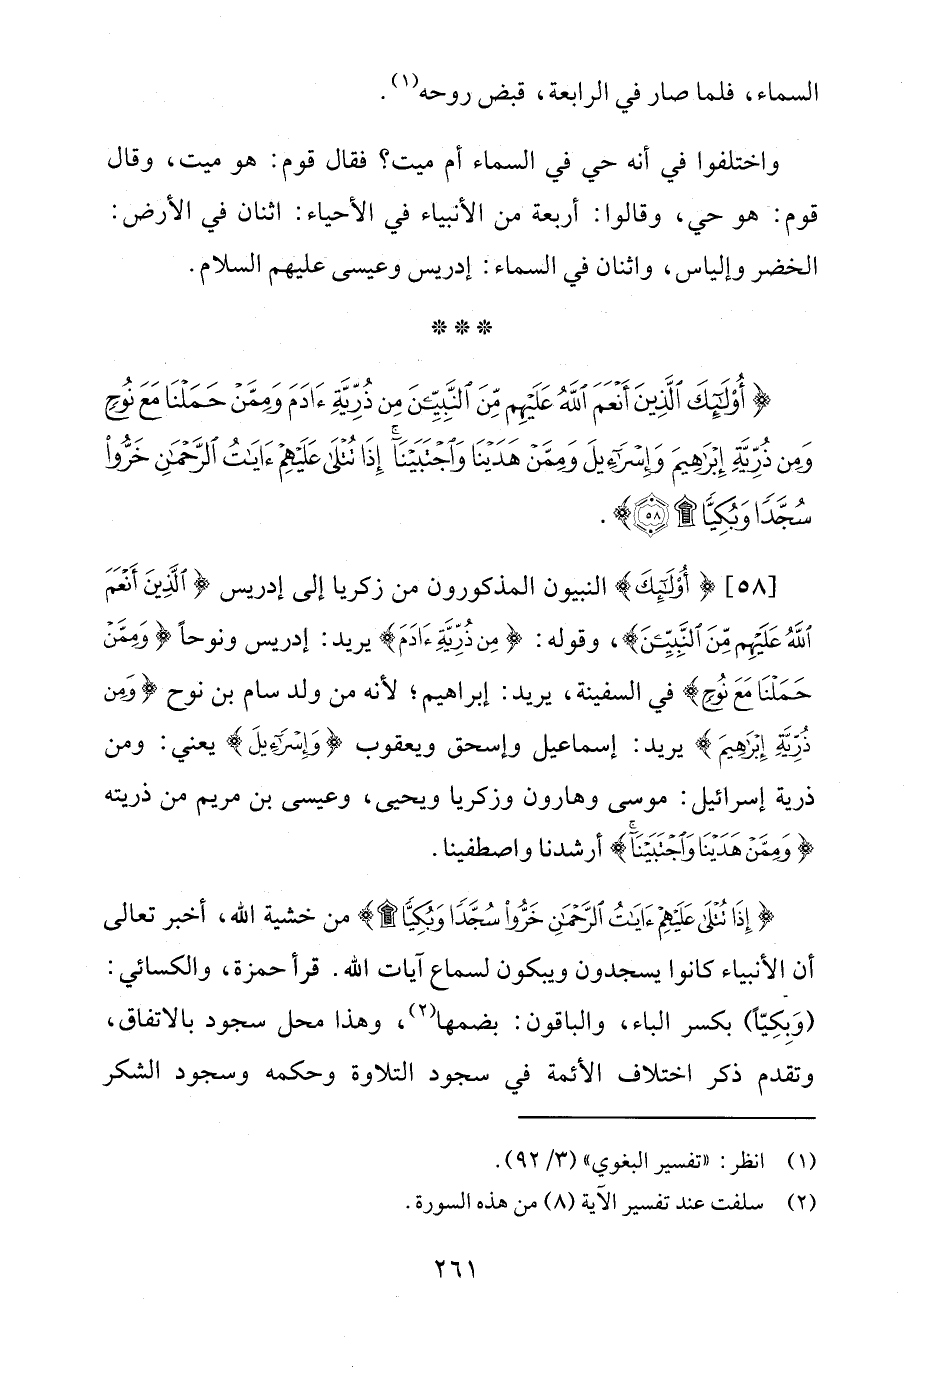 السماء، فلما صار في الرابعة، قبض روحه(١).
واختلفوا في أنه حي في السماء أم ميت؟ فقال قوم: هو ميت، وقال
قوم: هو حي، وقالوا: أربعة من الأنبياء في الأحياء: اثنان في الأرض:
الخضر وإلياس، واثنان في السماء: إدريس وعيسى عليهم السلام.
* * *
﴿ أُوْلَٰٓئِكَ ٱلَّذِينَ أَنْعَمَ ٱللَّهُ عَلَيْهِم مِّنَ ٱلنَّبِيِّـۧنَ مِن ذُرِّيَّةِ ءَادَمَ وَمِمَّنْ حَمَلْنَا مَعَ نُوحٍ
وَمِن ذُرِّيَّةِ إِبْرَٰهِيمَ وَإِسْرَٰٓءِيلَ وَمِمَّنْ هَدَيْنَا وَٱجْتَبَيْنَآ ۚ إِذَا تُتْلَىٰ عَلَيْهِمْ ءَايَٰتُ ٱلرَّحْمَٰنِ خَرُّوا۟
سُجَّدًا وَبُكِيًّا ۩ ٥٨﴾ .
[٥٨] ﴿ أُوْلَٰٓئِكَ﴾ النبيون المذكورون من زكريا إلى إدريس ﴿ ٱلَّذِينَ أَنْعَمَ
ٱللَّهُ عَلَيْهِم مِّنَ ٱلنَّبِيِّـۧنَ﴾، وقوله: ﴿ مِن ذُرِّيَّةِ ءَادَمَ﴾ يريد: إدريس ونوحاً ﴿ وَمِمَّنْ
حَمَلْنَا مَعَ نُوحٍ﴾ في السفينة، يريد: إبراهيم؛ لأنه من ولد سام بن نوح ﴿ وَمِن
ذُرِّيَّةِ إِبْرَٰهِيمَ ﴾ يريد: إسماعيل وإسحق ويعقوب ﴿ وَإِسْرَٰٓءِيلَ ﴾ يعني: ومن
ذرية إسرائيل: موسى وهارون وزكريا ويحيى، وعيسى بن مريم من ذريته
﴿ وَمِمَّنْ هَدَيْنَا وَٱجْتَبَيْنَآ ۚ﴾ أرشدنا واصطفينا.
﴿ إِذَا تُتْلَىٰ عَلَيْهِمْ ءَايَٰتُ ٱلرَّحْمَٰنِ خَرُّوا۟ سُجَّدًا وَبُكِيًّا ۩ ﴾ من خشية الله، أخبر تعالى
أن الأنبياء كانوا يسجدون ويبكون لسماع آيات الله. قرأ حمزة، والكسائي:
(وَبِكِيّاً) بكسر الباء، والباقون: بضمها(٢)، وهذا محل سجود بالاتفاق،
وتقدم ذكر اختلاف الأئمة في سجود التلاوة وحكمه وسجود الشكر
(١) انظر: «تفسير البغوي» (٣/ ٩٢).
(٢) سلفت عند تفسير الآية (٨) من هذه السورة.
٢٦١